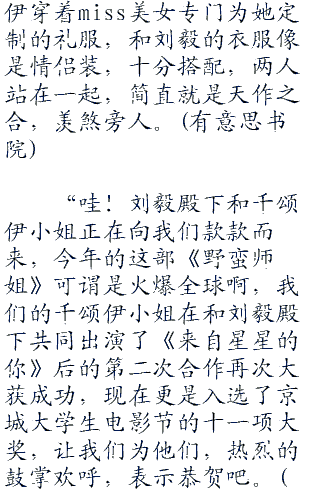 伊穿着miss美女专门为她定
制的礼服，和刘毅的衣服像
是情侣装，十分搭配，两人
站在一起，简直就是天作之
合，羡煞旁人。(有意思书
院)
“哇！刘毅殿下和千颂
伊小姐正在向我们款款而
来，今年的这部《野蛮师
姐》可谓是火爆全球啊，我
们的千颂伊小姐在和刘毅殿
下共同出演了《来自星星的
你》后的第二次合作再次大
获成功，现在更是入选了京
城大学生电影节的十一项大
奖，让我们为他们，热烈的
鼓掌欢呼，表示恭贺吧。(